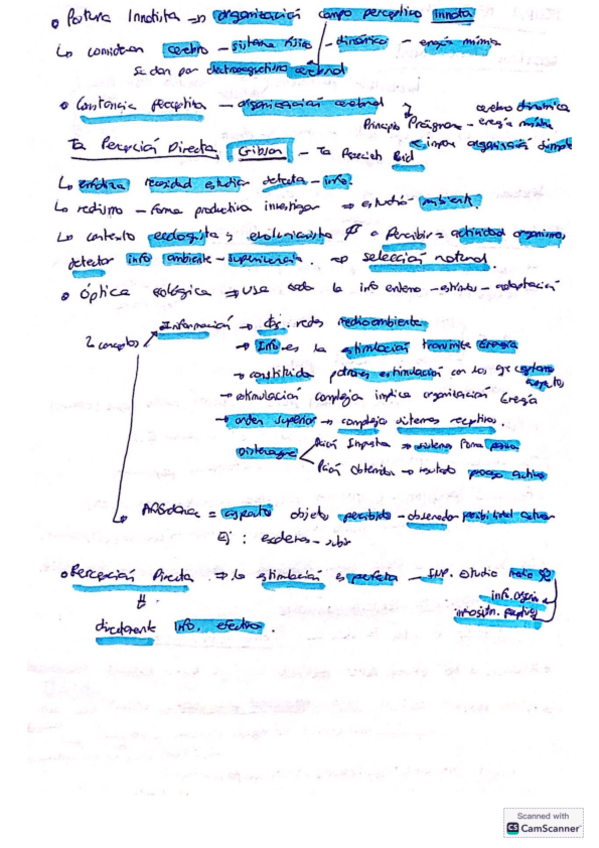 • Postura Innatista → organización campo perceptivo innata
↳ consideran cerebro - sistema físico - dinámico - energía mínima
Se dan por electromagnetismo cerebral
• Constancia perceptiva - organización cerebral
cerebro dinámica
Principio Prägnanz - energía mínima
organización simple
Ta Percepción Directa Gibson - Ta Percich Bid
↳ enfatiza necesidad estudiar detecta - info.
↳ realismo - forma productiva investigar ⇒ estudió ambiente.
↳ contexto ecologista y evolucionista Percibir = actividad organismo,
detector info ambiente - supervivencia. ⇒ selección natural.
• óptica ecológica ⇒ usa toda la info entorno - estímulos - adaptación
2 conceptos
Información → redes medioambiente
→ Info es la estimulación transmite Energía
→ constituida patrones estimulación con los que
→ estimulación compleja implica organización Energía
→ orden superior → complejos sistemas receptivos.
Distingue
Pción Impuesta ⇒ sistema Forma pasiva
Pción Obtenida → resultado proceso activo
Affordance = aspecto objeto percibido - observador posibilidad actuar
Ej: escalera - subir
• Percepción Directa ⇒ la estimulación es perfecta - Imp. estudio
info. organi
info sistm. Percep
directamente Info. efectiva.
Scanned with
CS CamScanner